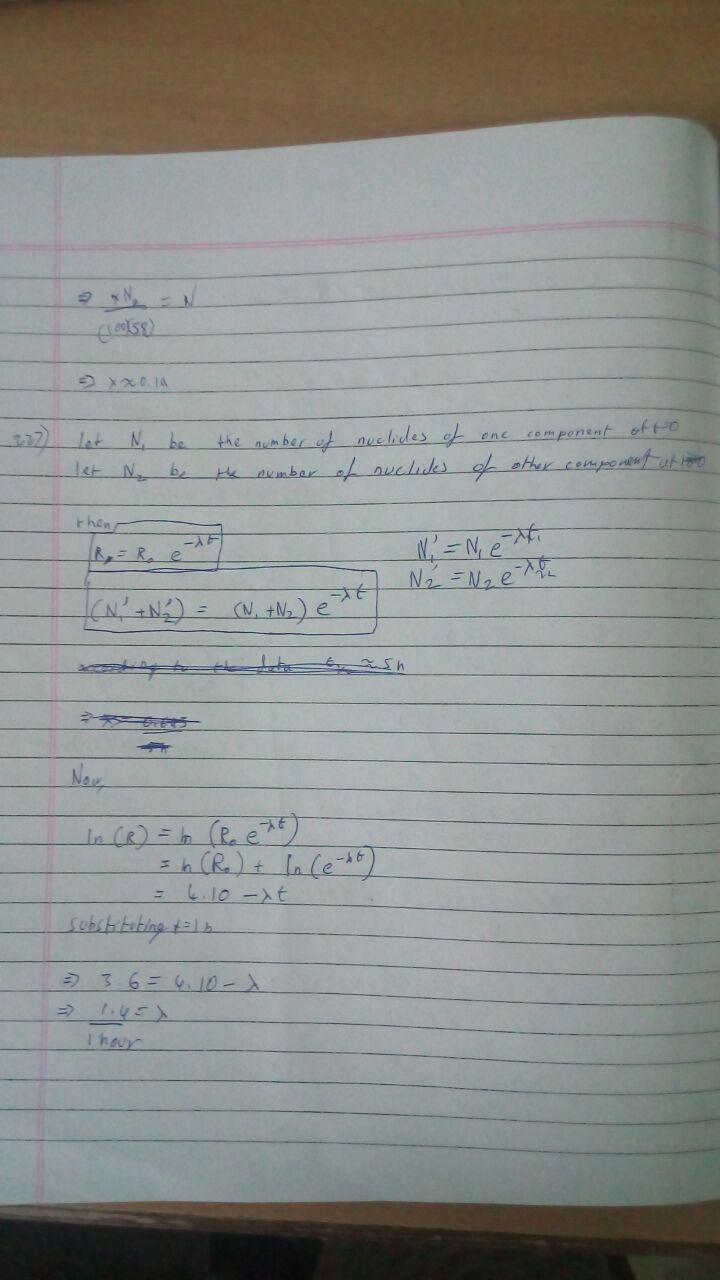 ⇒ xN₀ = N
(100)(58)
⇒ λ ≈ 0.1
227) let N₁ be the number of nuclides of one component at t=0
let N₂ be the number of nuclides of other component at t=0
then
R = R₀ e^-λt
N₁' = N₁ e^-λt₁
N₂' = N₂ e^-λt₂
(N₁' + N₂') = (N₁ + N₂) e^-λt
according to the data t ≈ 5h
⇒
Now,
ln (R) = ln (R₀ e^-λt)
= ln (R₀) + ln (e^-λt)
= 4.10 - λt
substituting t=1h
⇒ 3.6 = 4.10 - λ
⇒ 1.4 = λ
1 hour